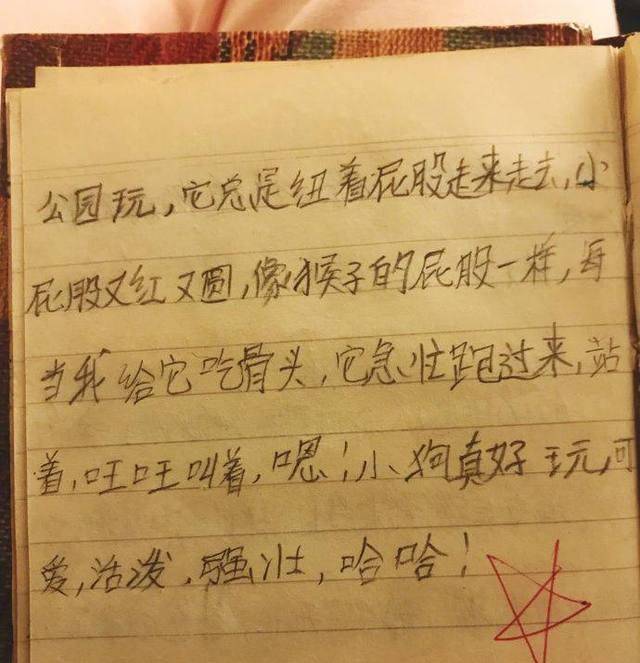 公园玩,它总是纽着屁股走来走去,小
屁股又红又圆,像猴子的屁股一样,每
当我给它吃骨头,它急忙跑过来,站
着,吐吐叫着,嗯!小狗真好玩,可
爱,活泼,强壮,哈哈!